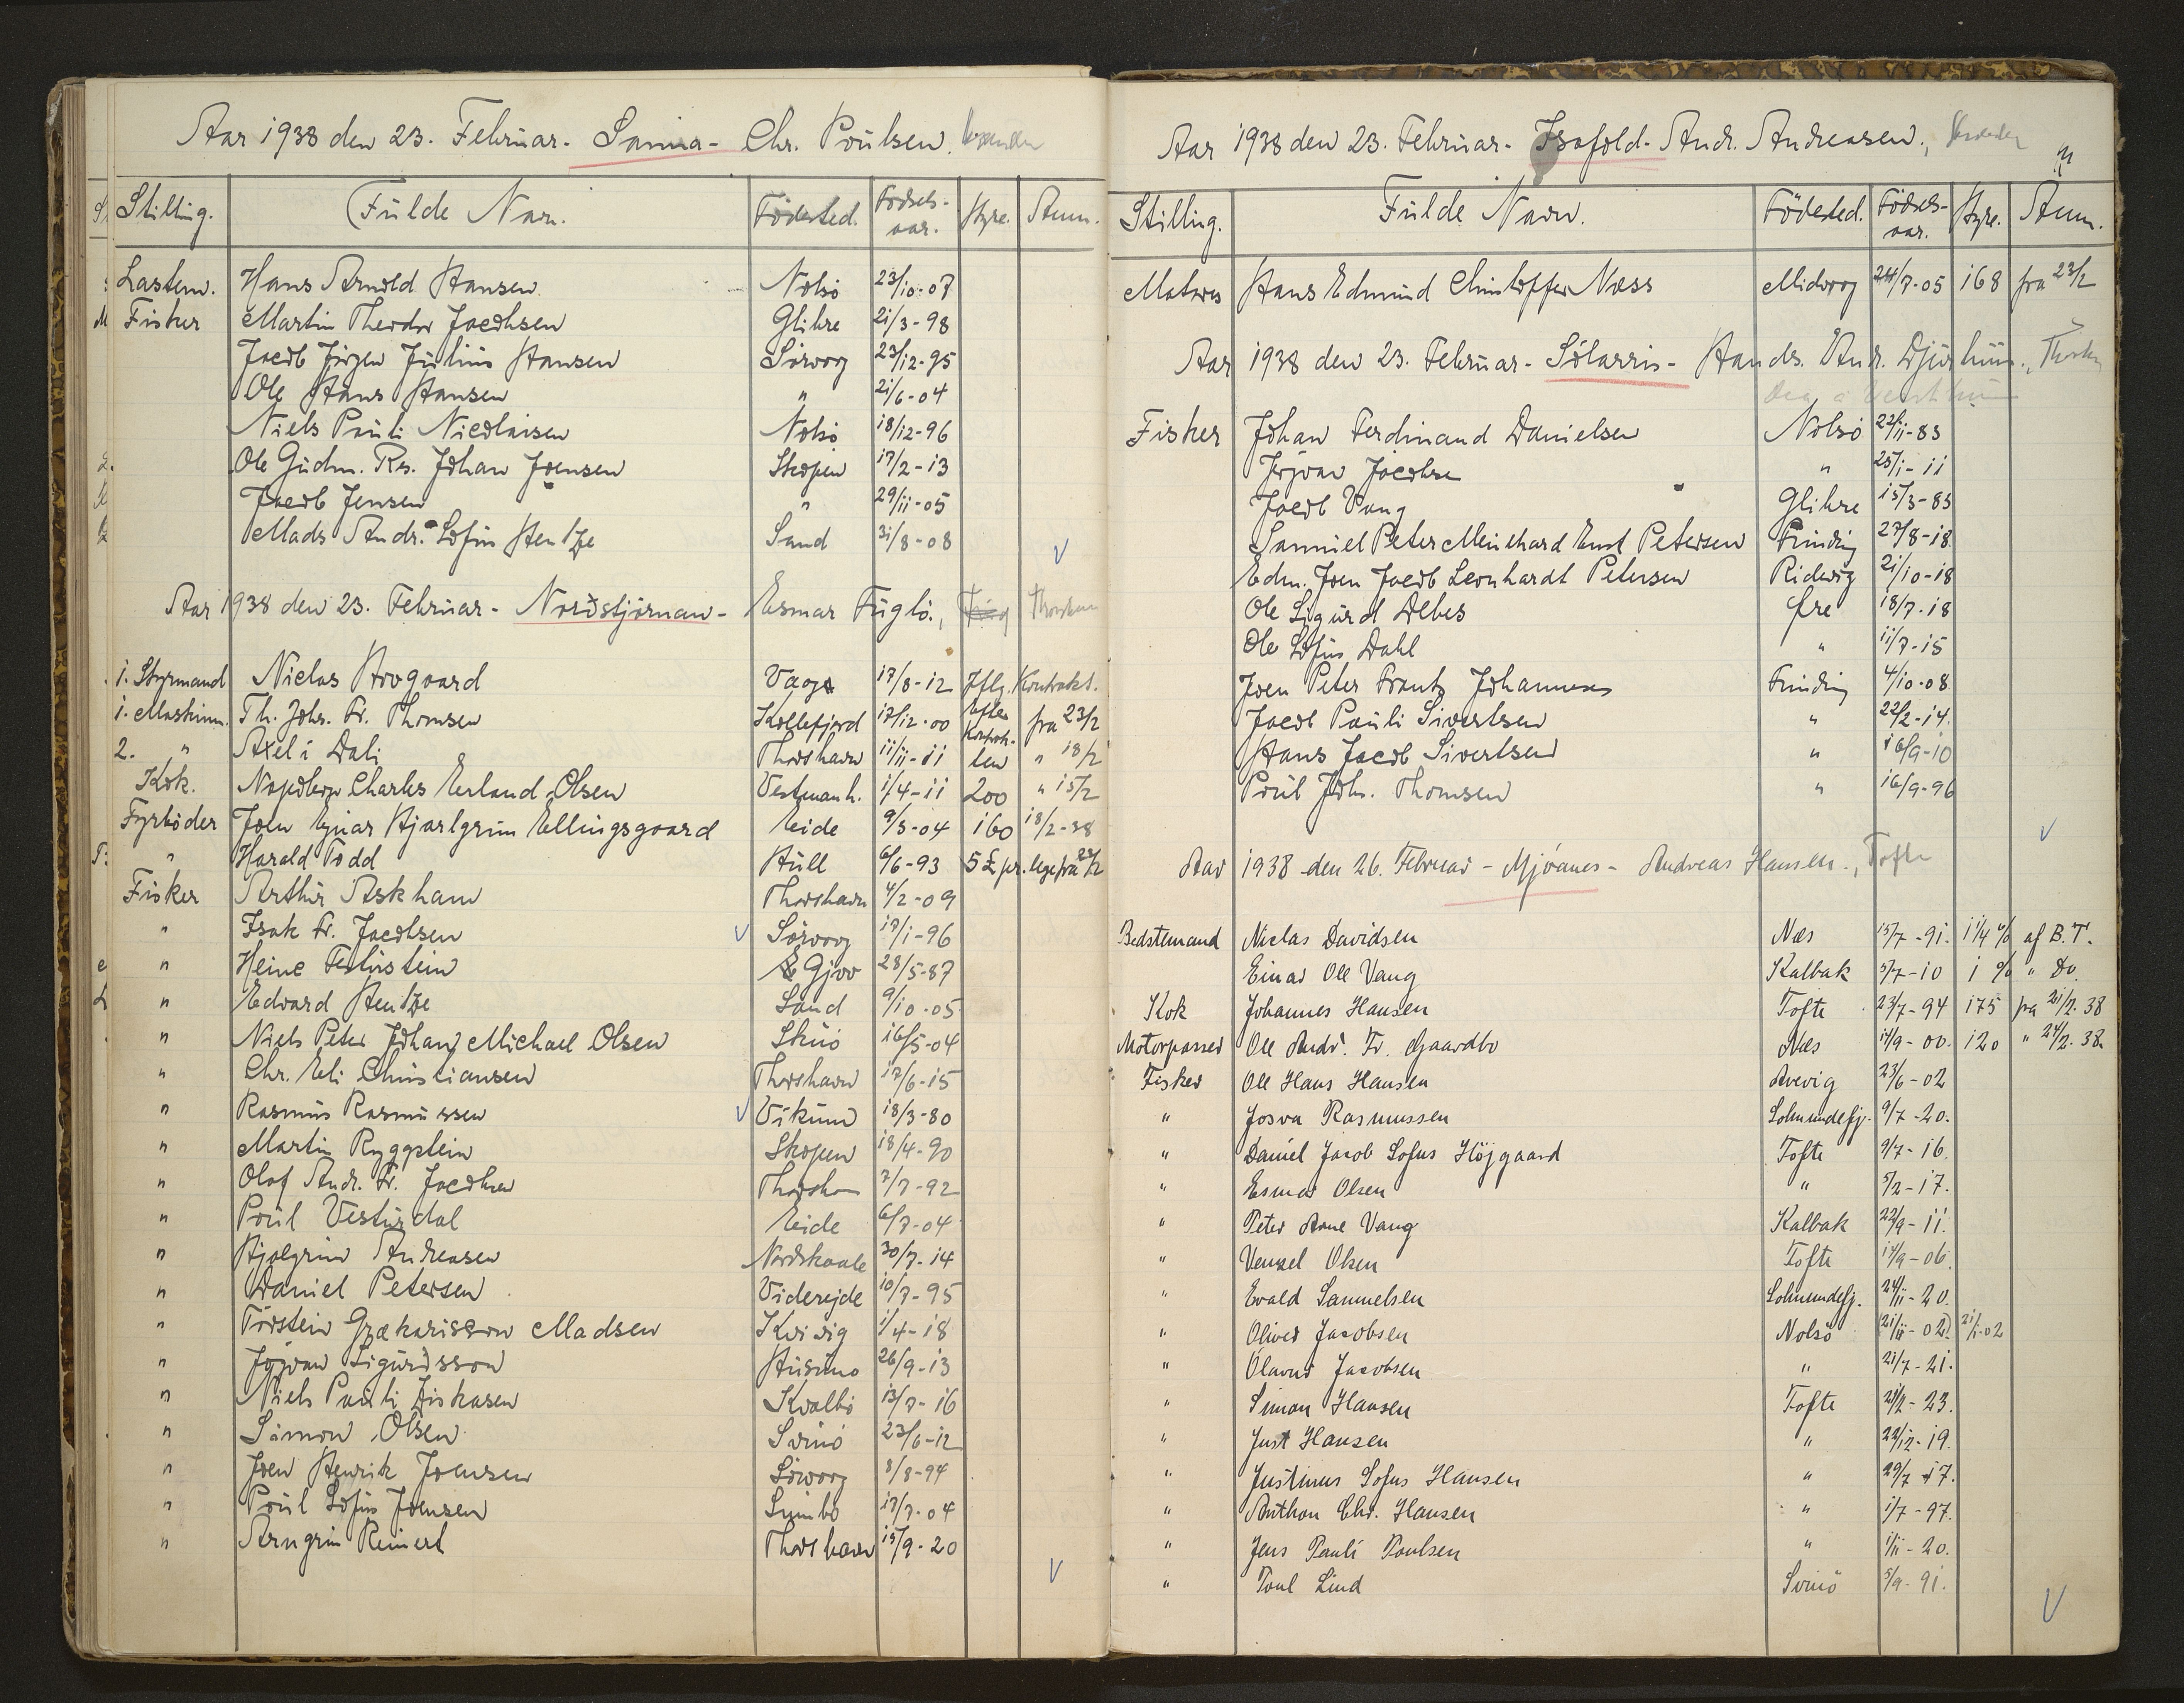 Aar 1938 den 23. Februar - Sanna - Chr. Poulsen.
Stilling. Fulde Navn. Födested. Födsels-aar. Hyre. Anm.
Lastem. Hans Arnold Hansen Nolsö 23/10-07
Fisker Martin Theodor Jacobsen Glibre 21/3-98
Jacob Jörgen Julius Hansen Sörvaag 23/12-95
Ole Hans Hansen " 21/6-04
Niels Pauli Nicolaisen Nolsö 18/12-96
Ole Gudm. Rs. Johan Joensen Skopen 17/2-13
Jacob Jensen " 29/11-05
Mads Andr. Sofus Hentze Sand 31/8-08
Aar 1938 den 23. Februar - Nordstjörnan - Esmar Fuglö., Thorshavn
1. Styrmand Niclas Hovgaard Vaag 17/8-12 Iflg. Kontrakt.
1. Maskinm. Th. Johs. Fr. Thomsen Kollefjord 17/12-00 efter fra 23/2
2. " Axel í Dali Thorshavn 11/11-11 Kontrak-ten " 18/2
Kok. Napoleon Charles Erland Olsen Vestmanh. 1/4-11 200 " 15/2
Fyrböder Joen Ejnar Hjarlgrim Ellingsgaard Eide 9/3-04 160 18/2-38
" Harald Todd Hull 6/6-93 5£ pr. uge fra 22/2
Fisker Arthur Askham Thorshavn 4/2-09
" Isak Fr. Jacobsen Sörvaag 17/1-96
" Heine Festirstein Gjov 28/5-87
" Edvard Hentze Sand 9/10-05
" Niels Peter Johan Michael Olsen Skuö 16/5-04
" Chr. Eli Christiansen Thorshavn 17/6-15
" Rasmus Rasmussen Vikum 18/3-80
" Martin Ryggstein Skopen 18/4-90
" Olaf Andr. Fr. Jacobsen Thorshavn 7/7-92
" Poul Vesturdal Eide 6/7-04
" Hjalgrim Andreasen Nordskaale 30/7-14
" Daniel Petersen Viderejde 10/7-95
" Törstein Grækarisson Madsen Kvivig 1/4-18
" Jógvan Sigurdsson Husum 26/9-13
" Niels Pauli Ziskasen Kvalbö 13/7-16
" Símon Olsen Svinö 23/6-12
" Joen Henrik Joensen Sörvaag 8/8-94
" Poul Sofus Joensen Sumbö 17/7-04
" Arngrim Reinert Thorshavn 15/9-20
Aar 1938 den 23. Februar - Isafold - Andr. Andreasen.,
Stilling. Fulde Navn. Födested. Födsels-aar. Hyre. Anm.
Matros Hans Edmund Christoffer Næss Midvaag 24/7-05 168 fra 23/2
Aar 1938 den 23. Februar - Sólarris - Hans Andr. Djurhuus.,
Fisker Johan Ferdinand Danielsen Nolsö 22/11-83
Jógvan Jacobsen " 25/1-11
Jacob Vang Glibre 15/3-83
Samuel Peter Meinhard Ernst Petersen Funding 27/8-18
Edm. Joen Jacob Leonhardt Petersen Ridevig 21/10-18
Ole Sigurd Debes Öre 18/7-18
Ole Sofus Dahl " 11/7-15
Joen Peter Frantz Johannesen Funding 4/10-08
Jacob Pauli Sivertsen " 22/2-14
Hans Jacob Sivertsen " 16/9-10
Poul Johs. Thomsen " 16/9-96
Aar 1938 den 26. Februar - Mjóanes - Andreas Hansen., Tofte
Bedstemand Niclas Davidsen Næs 15/7-91. 1 1/4 % af B.T.
Einar Ole Vang Kalbak 5/7-10 1 % " Do.
Kok Johannes Hansen Tofte 23/7-94 175 fra 21/2-38
Motorpasser Ole Andr. Fr. Gaardbo Næs 14/9-00. 120 " 24/2-38
Fisker Ole Hans Hansen Arevig 23/6-02
" Josva Rasmussen Solmundefj. 9/7-20.
" Daniel Jacob Sofus Höjgaard Tofte 9/7-16.
" Esmar Olsen " 5/2-17.
" Peter Arne Vang Kalbak 22/9-11.
" Venzel Olsen Tofte 14/9-06.
" Evald Samuelsen Solmundefj. 24/11-20.
" Oliver Jacobsen Nolsö (21/11-02) 21/1-02
" Olavur Jacobsen " 21/7-21.
" Simon Hansen Tofte 21/2-23.
" Just Hansen " 22/12-19.
" Justinus Sofus Hansen " 29/7-17.
" Anthon Chr. Hansen " 1/7-97.
" Jens Pauli Poulsen " 1/11-20.
" Poul Lind Svinö 5/9-91.